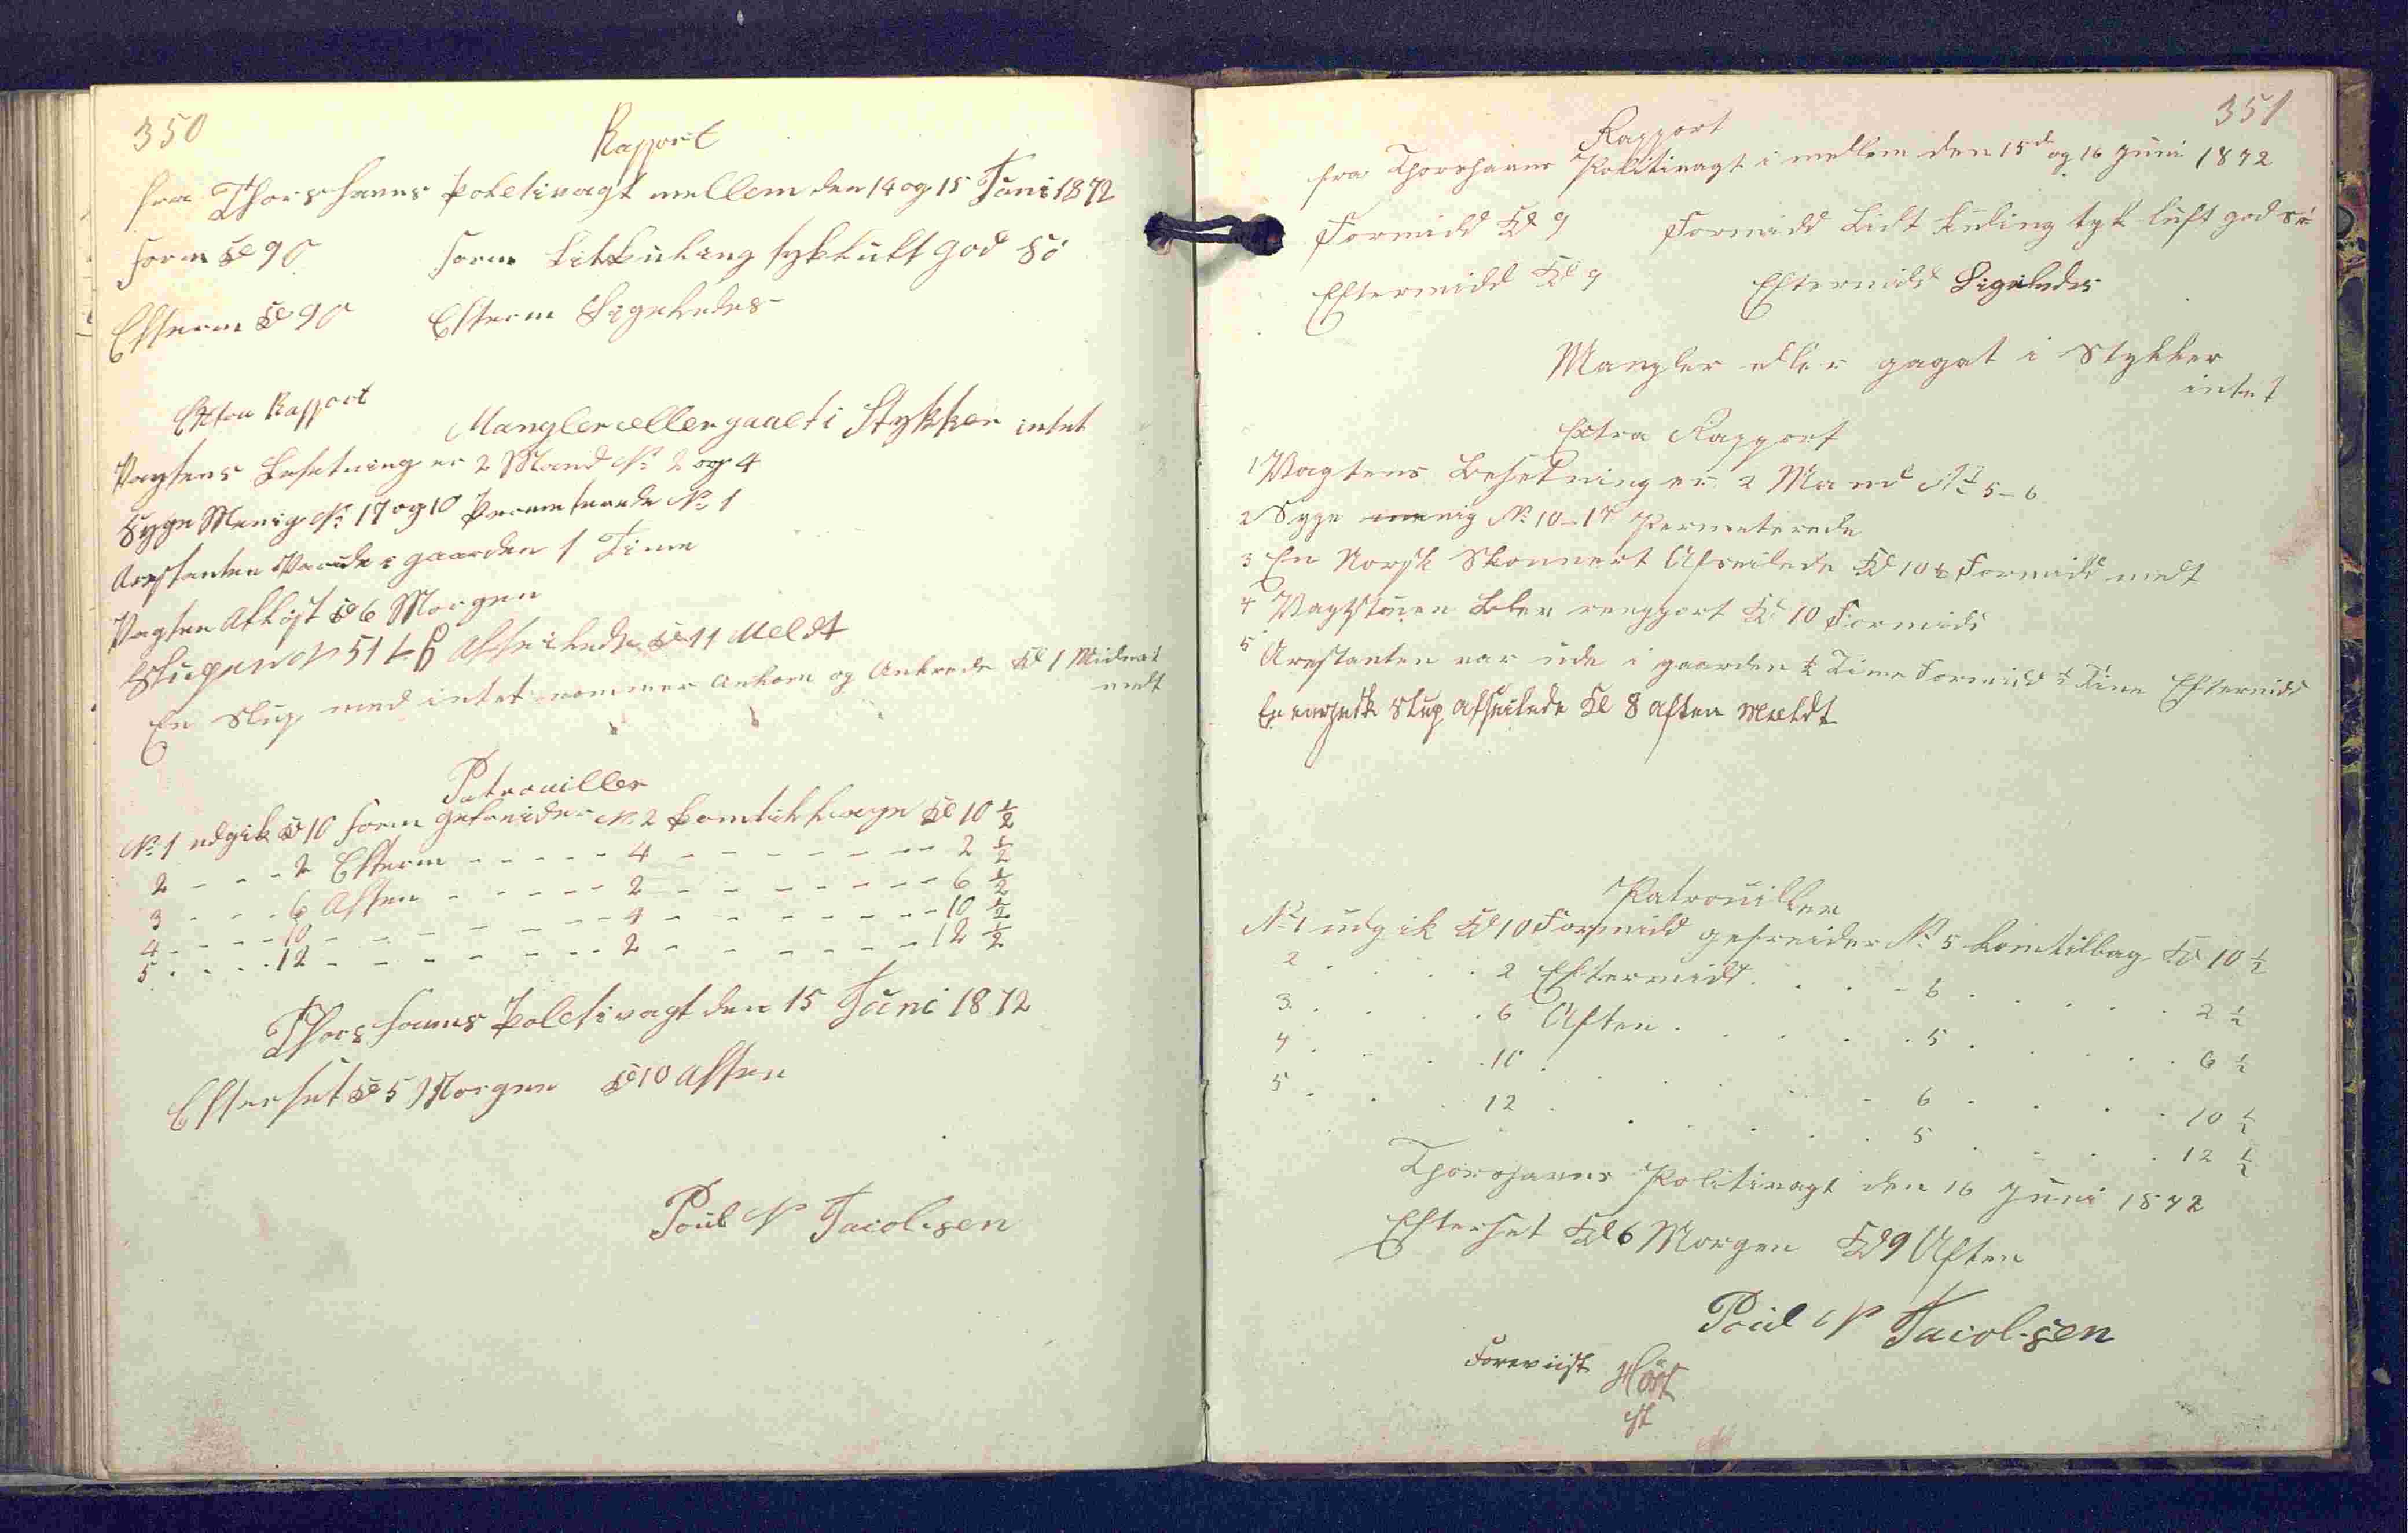 350
Rapport
fra Thorshavns Poletivagt mellem den 14 og 15 Juni 1872
Form Kl 9 0
Form Litkuling tykluft god Sö
Efterm Kl 9 0
Efterm Ligeledes
Ekstra Rapport
Mangler eller gaaet i Stykker intet
Vagtens Besetning er 2 Mand No 2 og 4
Syge Menig No 17 og 10 Permeterede No 1
Arestanten Var ude i gaarden 1 Time
Vagten Afløst Kl 6 Morgen
Slupen No 51 Afseilede Kl 11 Meldt
En Slup med intet nommer Ankom og Ankrede Kl 1 Midnat
meldt
Patrouiller
No 1 udgik Kl 10 Form gefreider No 2 komtilbage Kl 10 1/2
2 - - - 2 Efterm - - - - - 4 - - - - - - - - 2 1/2
3 - - - 6 Aften - - - - - 2 - - - - - - - - 6 1/2
4 - - - - 10 - - - - - - - 4 - - - - - - - - 10 1/2
5 - - - - 12 - - - - - - - 2 - - - - - - - - 12 1/2
Thorshavns Poletivagt den 15 Juni 1872
Efterset Kl 5 Morgen Kl 10 Aften
Poul N Jacobsen
351
Rapport
fra Thorshavns Politivagt i mellem den 15d og 16 Juni 1872
Formidd Kl 9
Formidd Lidt kuling tyk luft god Sö
Eftermidd Kl 9
Eftermidd Ligeledes
Mangler eller gagat i Stykker
intet
Extra Rapport
1 Vagtens Besetning er 2 Mand No 5 - 6
2 Syge menig No 10 - 17 Permeterede
3 En Norsk Skonnert Afseilede Kl 10 1/2 Formidd meldt
4 Vagtstuen blev rengjort Kl 10 Formidd
5 Arestanten var ude i gaarden 1/2 Time Formidd 1/2 Time Eftermidd
En Slup afseilede Kl 8 aften Mældt
Patrouiller
No 1 udgik Kl 10 Formidd gefreider No 5 komtilbag Kl 10 1/2
2 . . . . 2 Eftermidt . . . . 6 . . . . . 2 1/2
3 . . . . 6 Aften . . . . . 5 . . . . . 6 1/2
4 . . . . 10 . . . . . . 6 . . . . . 10 1/2
5 . . . . 12 . . . . . . 5 . . . . . 12 1/2
Thorshavns Politivagt den 16 Juni 1872
Efterset Kl 6 Morgen Kl 9 Aften
Poul N Jacobsen
Foreviist